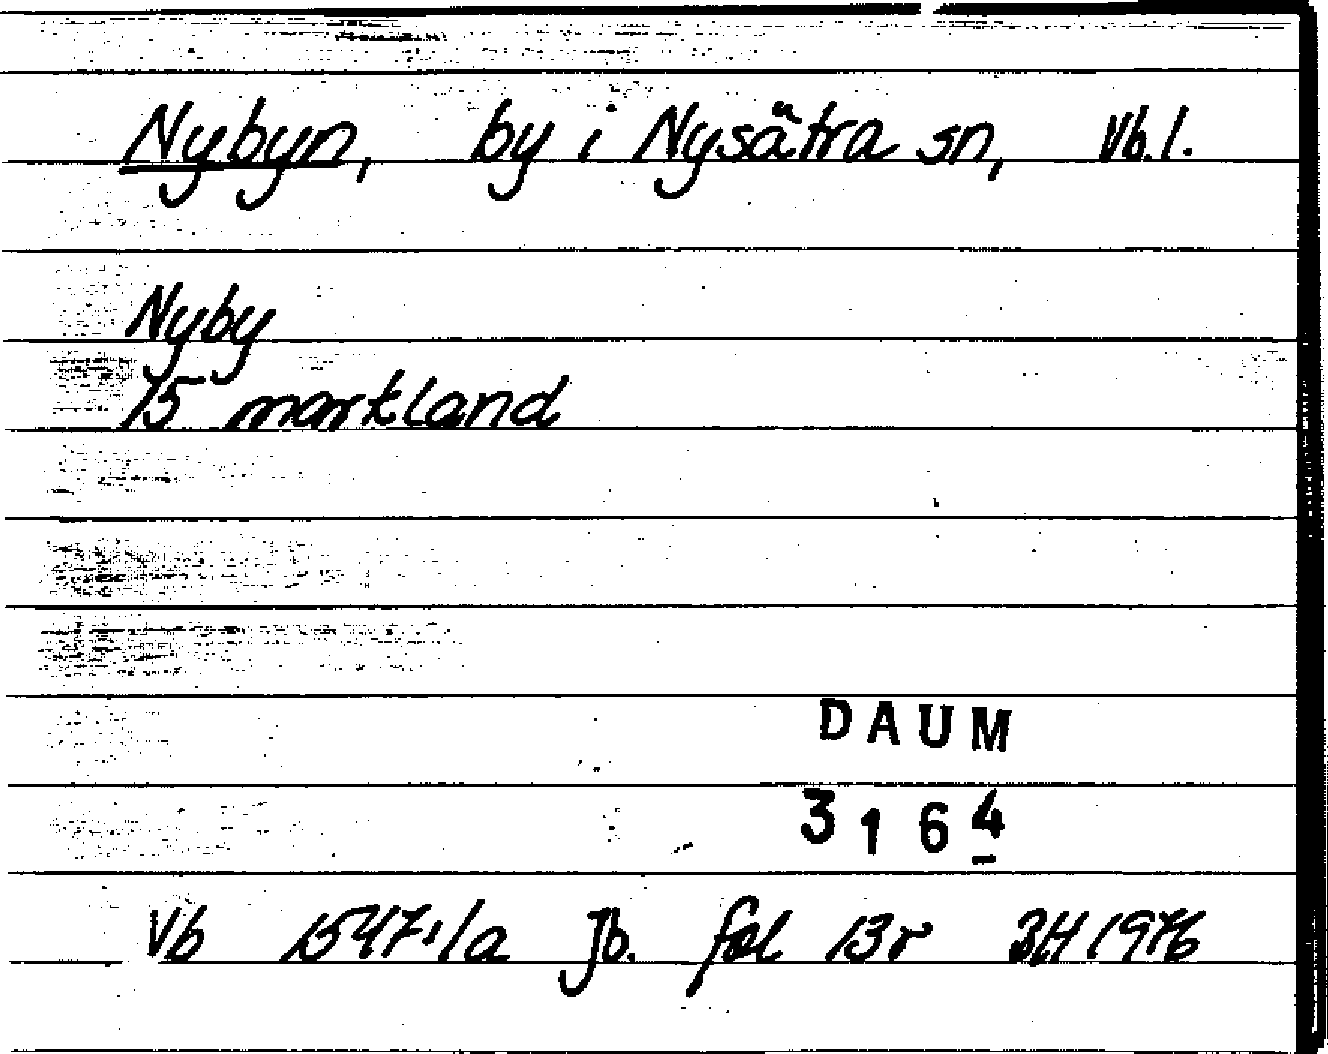 Nybyn, by i Nysätra sn, Vb.l.
Nyby
15 markland
DAUM
3164
Vb 1547:1a Jb. fol 13r BH 1976